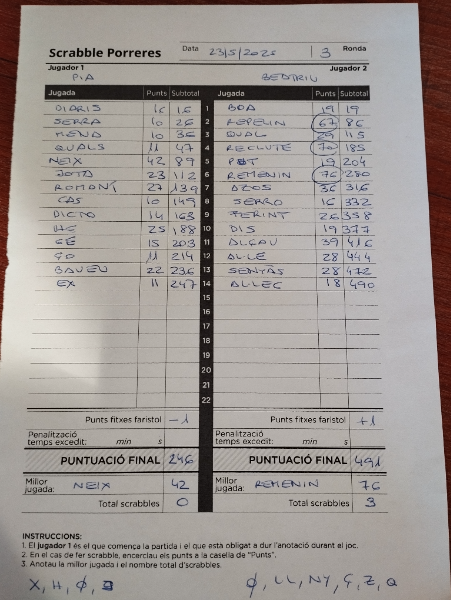 Scrabble Porreres Data 23/5/2025 3 Ronda
Jugador 1 Jugador 2
PIA BEATRIU
Jugada Punts Subtotal Jugada Punts Subtotal
DIARIS 16 16 1 BOA 19 19
SERRA 10 26 2 REPELIN 67 86
MENA 10 36 3 QUAL 29 115
QUALS 11 47 4 RECLUTÉ 70 185
NEIX 42 89 5 POT 19 204
JOTA 23 112 6 REMENIN 76 280
ROMANÍ 27 139 7 OZOS 36 316
CAS 10 149 8 SERRO 16 332
DICTO 14 163 9 FERINT 26 358
HE 25 188 10 DIS 19 377
GE 15 203 11 ALÇAU 39 416
GO 11 214 12 AL·LE 28 444
BAVEU 22 236 13 SENYÀS 28 472
EX 11 247 14 AL·LEG 18 490
15
16
17
18
19
20
21
22
Punts fitxes faristol -1 Punts fitxes faristol +1
Penalització temps excedit: min s Penalització temps excedit: min s
PUNTUACIÓ FINAL 246 PUNTUACIÓ FINAL 491
Millor jugada: NEIX 42 Millor jugada: REMENIN 76
Total scrabbles 0 Total scrabbles 3
INSTRUCCIONS:
1. El jugador 1 és el que comença la partida i el que està obligat a dur l'anotació durant el joc.
2. En el cas de fer scrabble, encarclau els punts a la casella de "Punts".
3. Anotau la millor jugada i el nombre total d'scrabbles.
X, H, Ø, Ø, L·L, NY, Ç, Z, Q